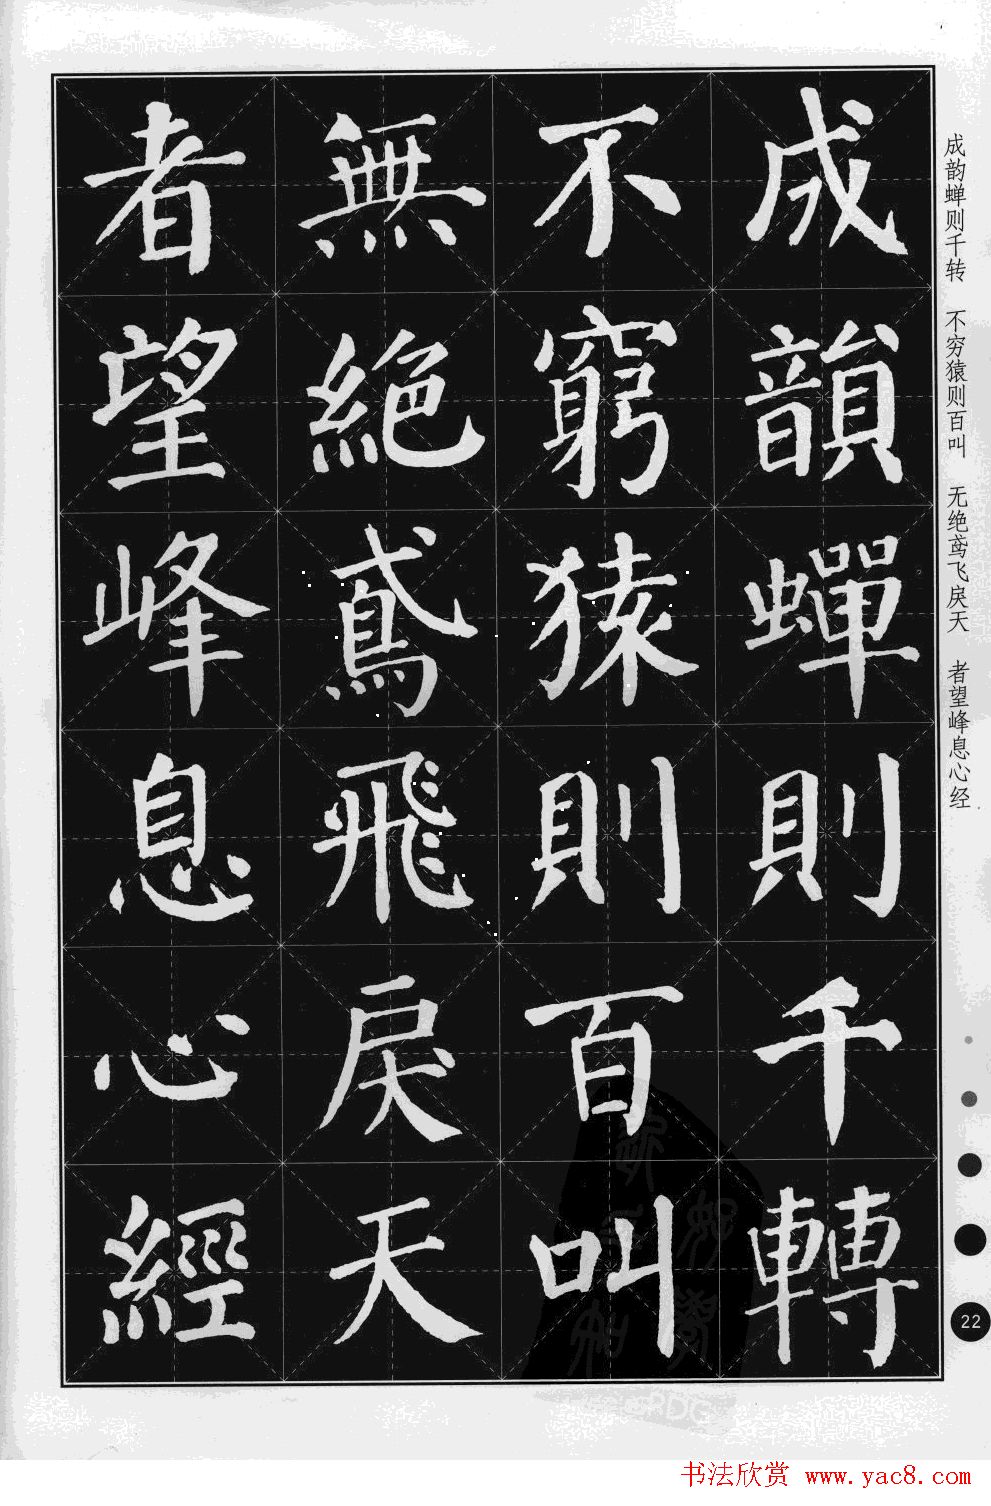 成韻蟬則千轉
不窮猿則百叫
無絕鳶飛戾天
者望峰息心經
成韵蝉则千转 不穷猿则百叫 无绝鸢飞戾天 者望峰息心经
22
书法欣赏 www.yac8.com